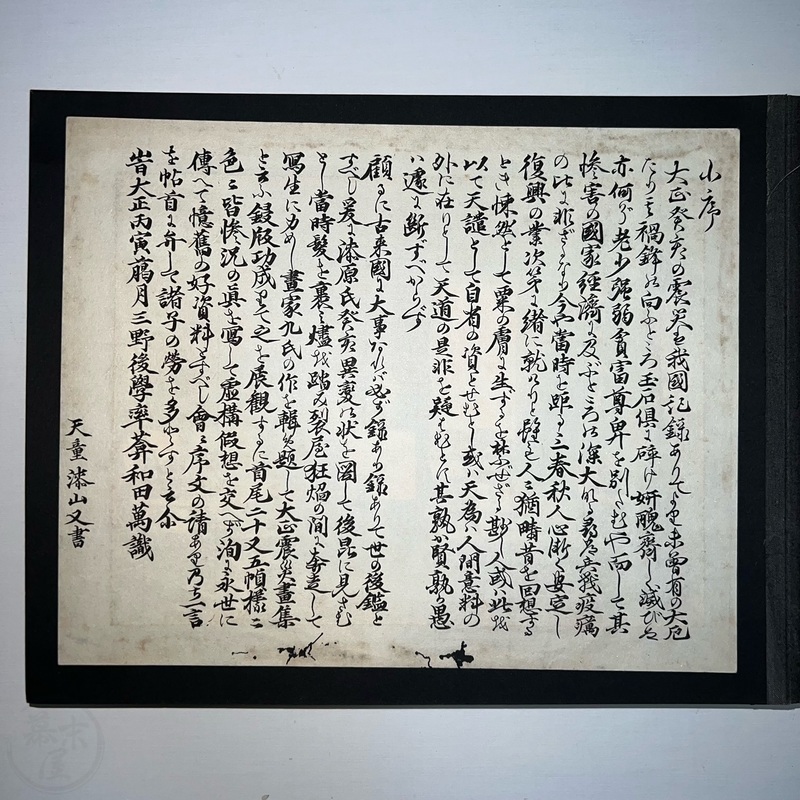 小序
大正癸亥の震災は我國記録ありてより未曾有の大厄
たり其禍鋒の向ふところ玉石倶に碎け妍醜齊しく滅びぬ
亦何ぞ老少强弱貧富尊卑を別たむや而して其
慘害の國家經濟に及ぶところ深大なる尋常兵戰疫癘
の比に非ざるなり今や當時を距る三春秋人心漸く安定し
復興の業次第に緒に就けりと雖も人々猶疇昔を回想する
とき悚然として粟の膚に生ずるを禁ぜざる斯人或は此を
以て天譴として自省の資とせむとし或は天為は人間意料の
外に在りとして天道の是非を疑はむとす甚孰か賢孰か愚
は遽に斷ずべからず
顧るに古来國に大事あれば必ず錄あり錄ありて世の後鑑と
すべし爰に漆原氏癸亥異變の状を圖して後昆に見さむ
とし當時髮を裹み燼を踏み裂屋狂焔の間に奔走して
寫生に力めし畫家九氏の作を輯め題して大正震災畫集
と云ふ鋟版功成りて之を展観するに首尾二十又五幀樣々
色々皆慘況の眞を寫して虚構假想を交へず洵に永世に
傳へて憶舊の好資料とすべし會々序文の請あり乃ち一言
を帖首に弁して諸子の勞を多とすと云尓
旹大正丙寅 月三野後學率葊和田萬識
天童漆山又書